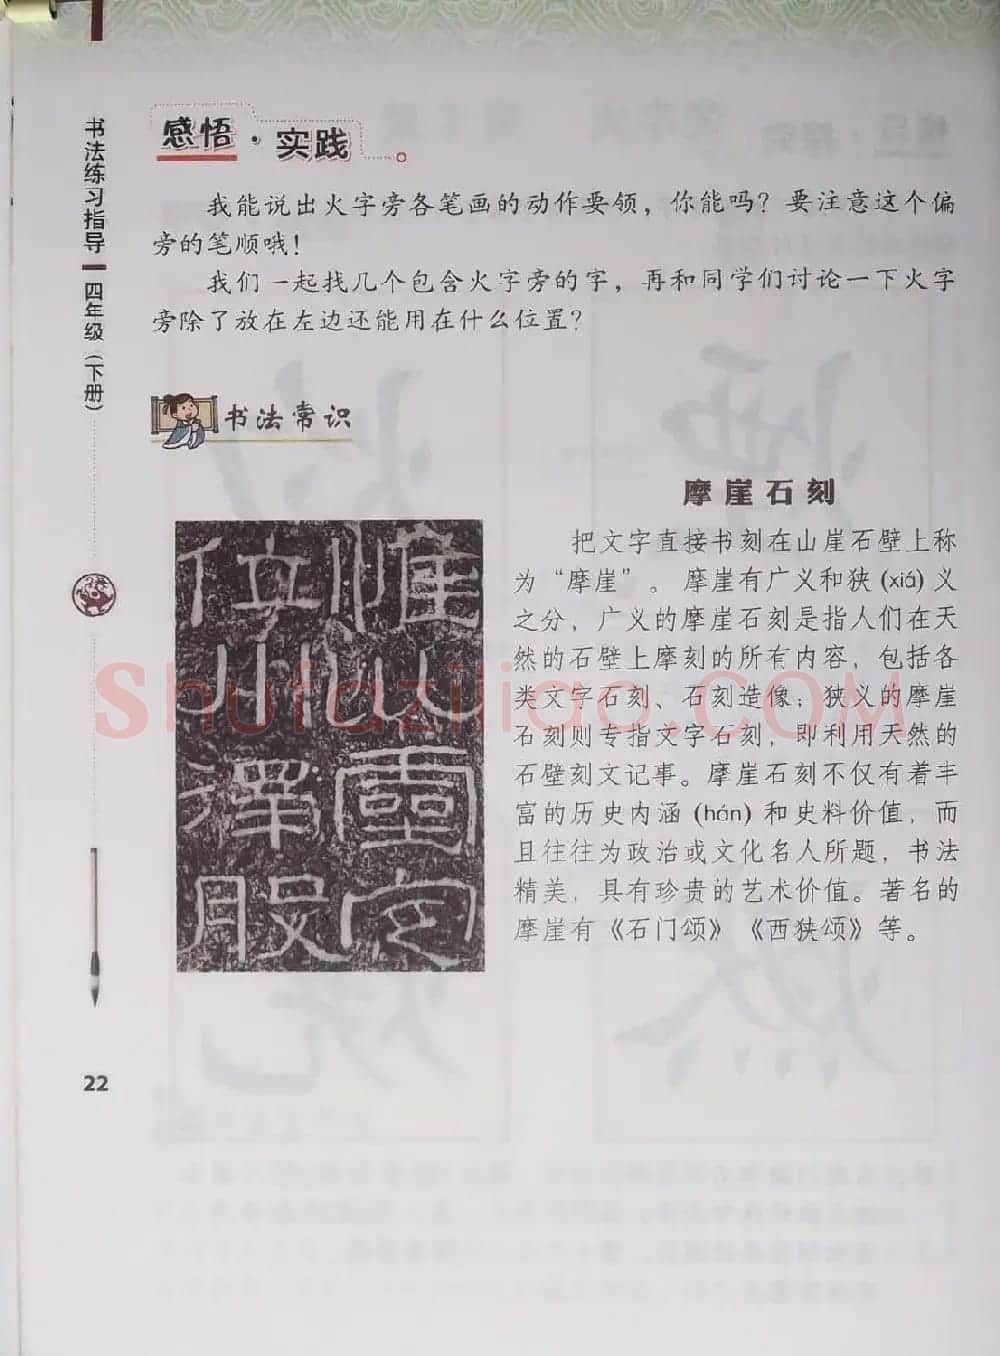 书法练习指导 四年级(下册)
感悟·实践
我能说出火字旁各笔画的动作要领，你能吗？要注意这个偏
旁的笔顺哦！
我们一起找几个包含火字旁的字，再和同学们讨论一下火字
旁除了放在左边还能用在什么位置？
书法常识
摩崖石刻
惟㘽靈定
位川澤股
把文字直接书刻在山崖石壁上称
为“摩崖”。摩崖有广义和狭(xiá)义
之分，广义的摩崖石刻是指人们在天
然的石壁上摩刻的所有内容，包括各
类文字石刻、石刻造像；狭义的摩崖
石刻则专指文字石刻，即利用天然的
石壁刻文记事。摩崖石刻不仅有着丰
富的历史内涵(hán)和史料价值，而
且往往为政治或文化名人所题，书法
精美，具有珍贵的艺术价值。著名的
摩崖有《石门颂》《西狭颂》等。
shufaziliao.COM
22